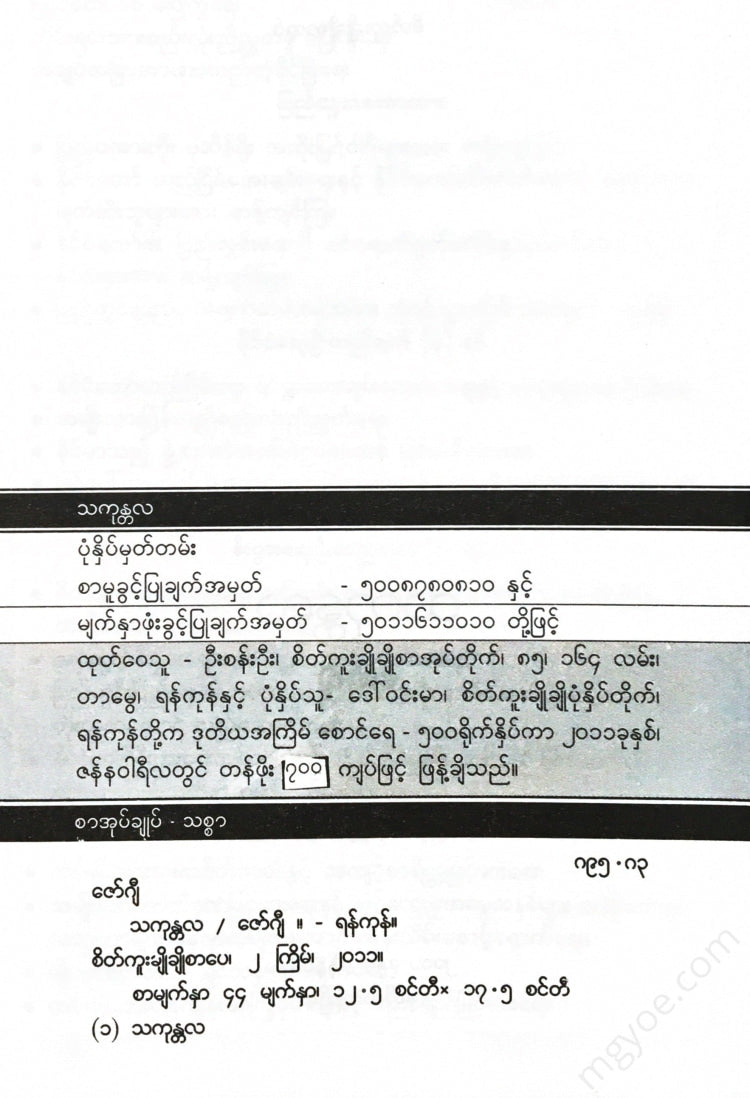 သကုန္တလ
ပုံနှိပ်မှတ်တမ်း
စာမူခွင့်ပြုချက်အမှတ် - ၅၀၀၈၇၈၀၈၁၀ နှင့်
မျက်နှာဖုံးခွင့်ပြုချက်အမှတ် - ၅၀၁၁၆၁၁၀၁၀ တို့ဖြင့်
ထုတ်ဝေသူ - ဦးစန်းဦး၊ စိတ်ကူးချိုချိုစာအုပ်တိုက်၊ ၈၅၊ ၁၆၄ လမ်း၊
တာမွေ၊ ရန်ကုန်နှင့် ပုံနှိပ်သူ- ဒေါ်ဝင်းမာ၊ စိတ်ကူးချိုချိုပုံနှိပ်တိုက်၊
ရန်ကုန်တို့က ဒုတိယအကြိမ် စောင်ရေ - ၅၀၀ရိုက်နှိပ်ကာ ၂၀၁၁ခုနှစ်၊
ဇန်နဝါရီလတွင် တန်ဖိုး ၇၀၀ ကျပ်ဖြင့် ဖြန့်ချိသည်။
စာအုပ်ချုပ် - သစ္စာ
၈၉၅.၈၃
ဇော်ဂျီ
သကုန္တလ / ဇော်ဂျီ ။ - ရန်ကုန်။
စိတ်ကူးချိုချိုစာပေ၊ ၂ ကြိမ်၊ ၂၀၁၁။
စာမျက်နှာ ၄၄ မျက်နှာ၊ ၁၂.၅ စင်တီ× ၁၇.၅ စင်တီ
(၁) သကုန္တလ
mgyoe.com